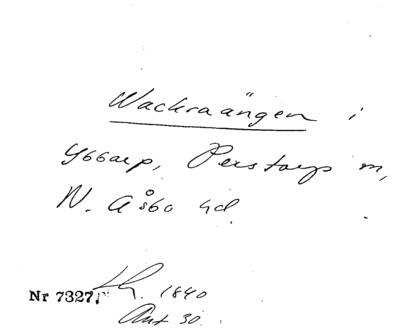 Wackraängen i
Ybbarp, Perstorps m,
N. Åsbo hd
Nr 7327. 1840
Ant 30.